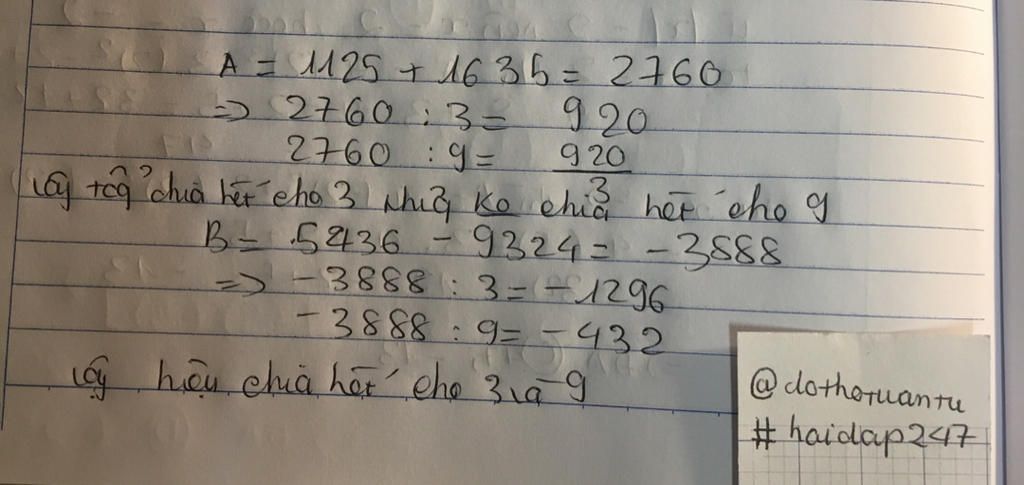 A = 1125 + 1635 = 2760
=> 2760 : 3 = 920
2760 : 9 = 920/3
Vậy tổng chia hết cho 3 nhưng ko chia hết cho 9
B = 5436 - 9324 = -3888
=> -3888 : 3 = -1296
-3888 : 9 = -432
Vậy hiệu chia hết cho 3 và 9
@dothotuantu
#haidap247